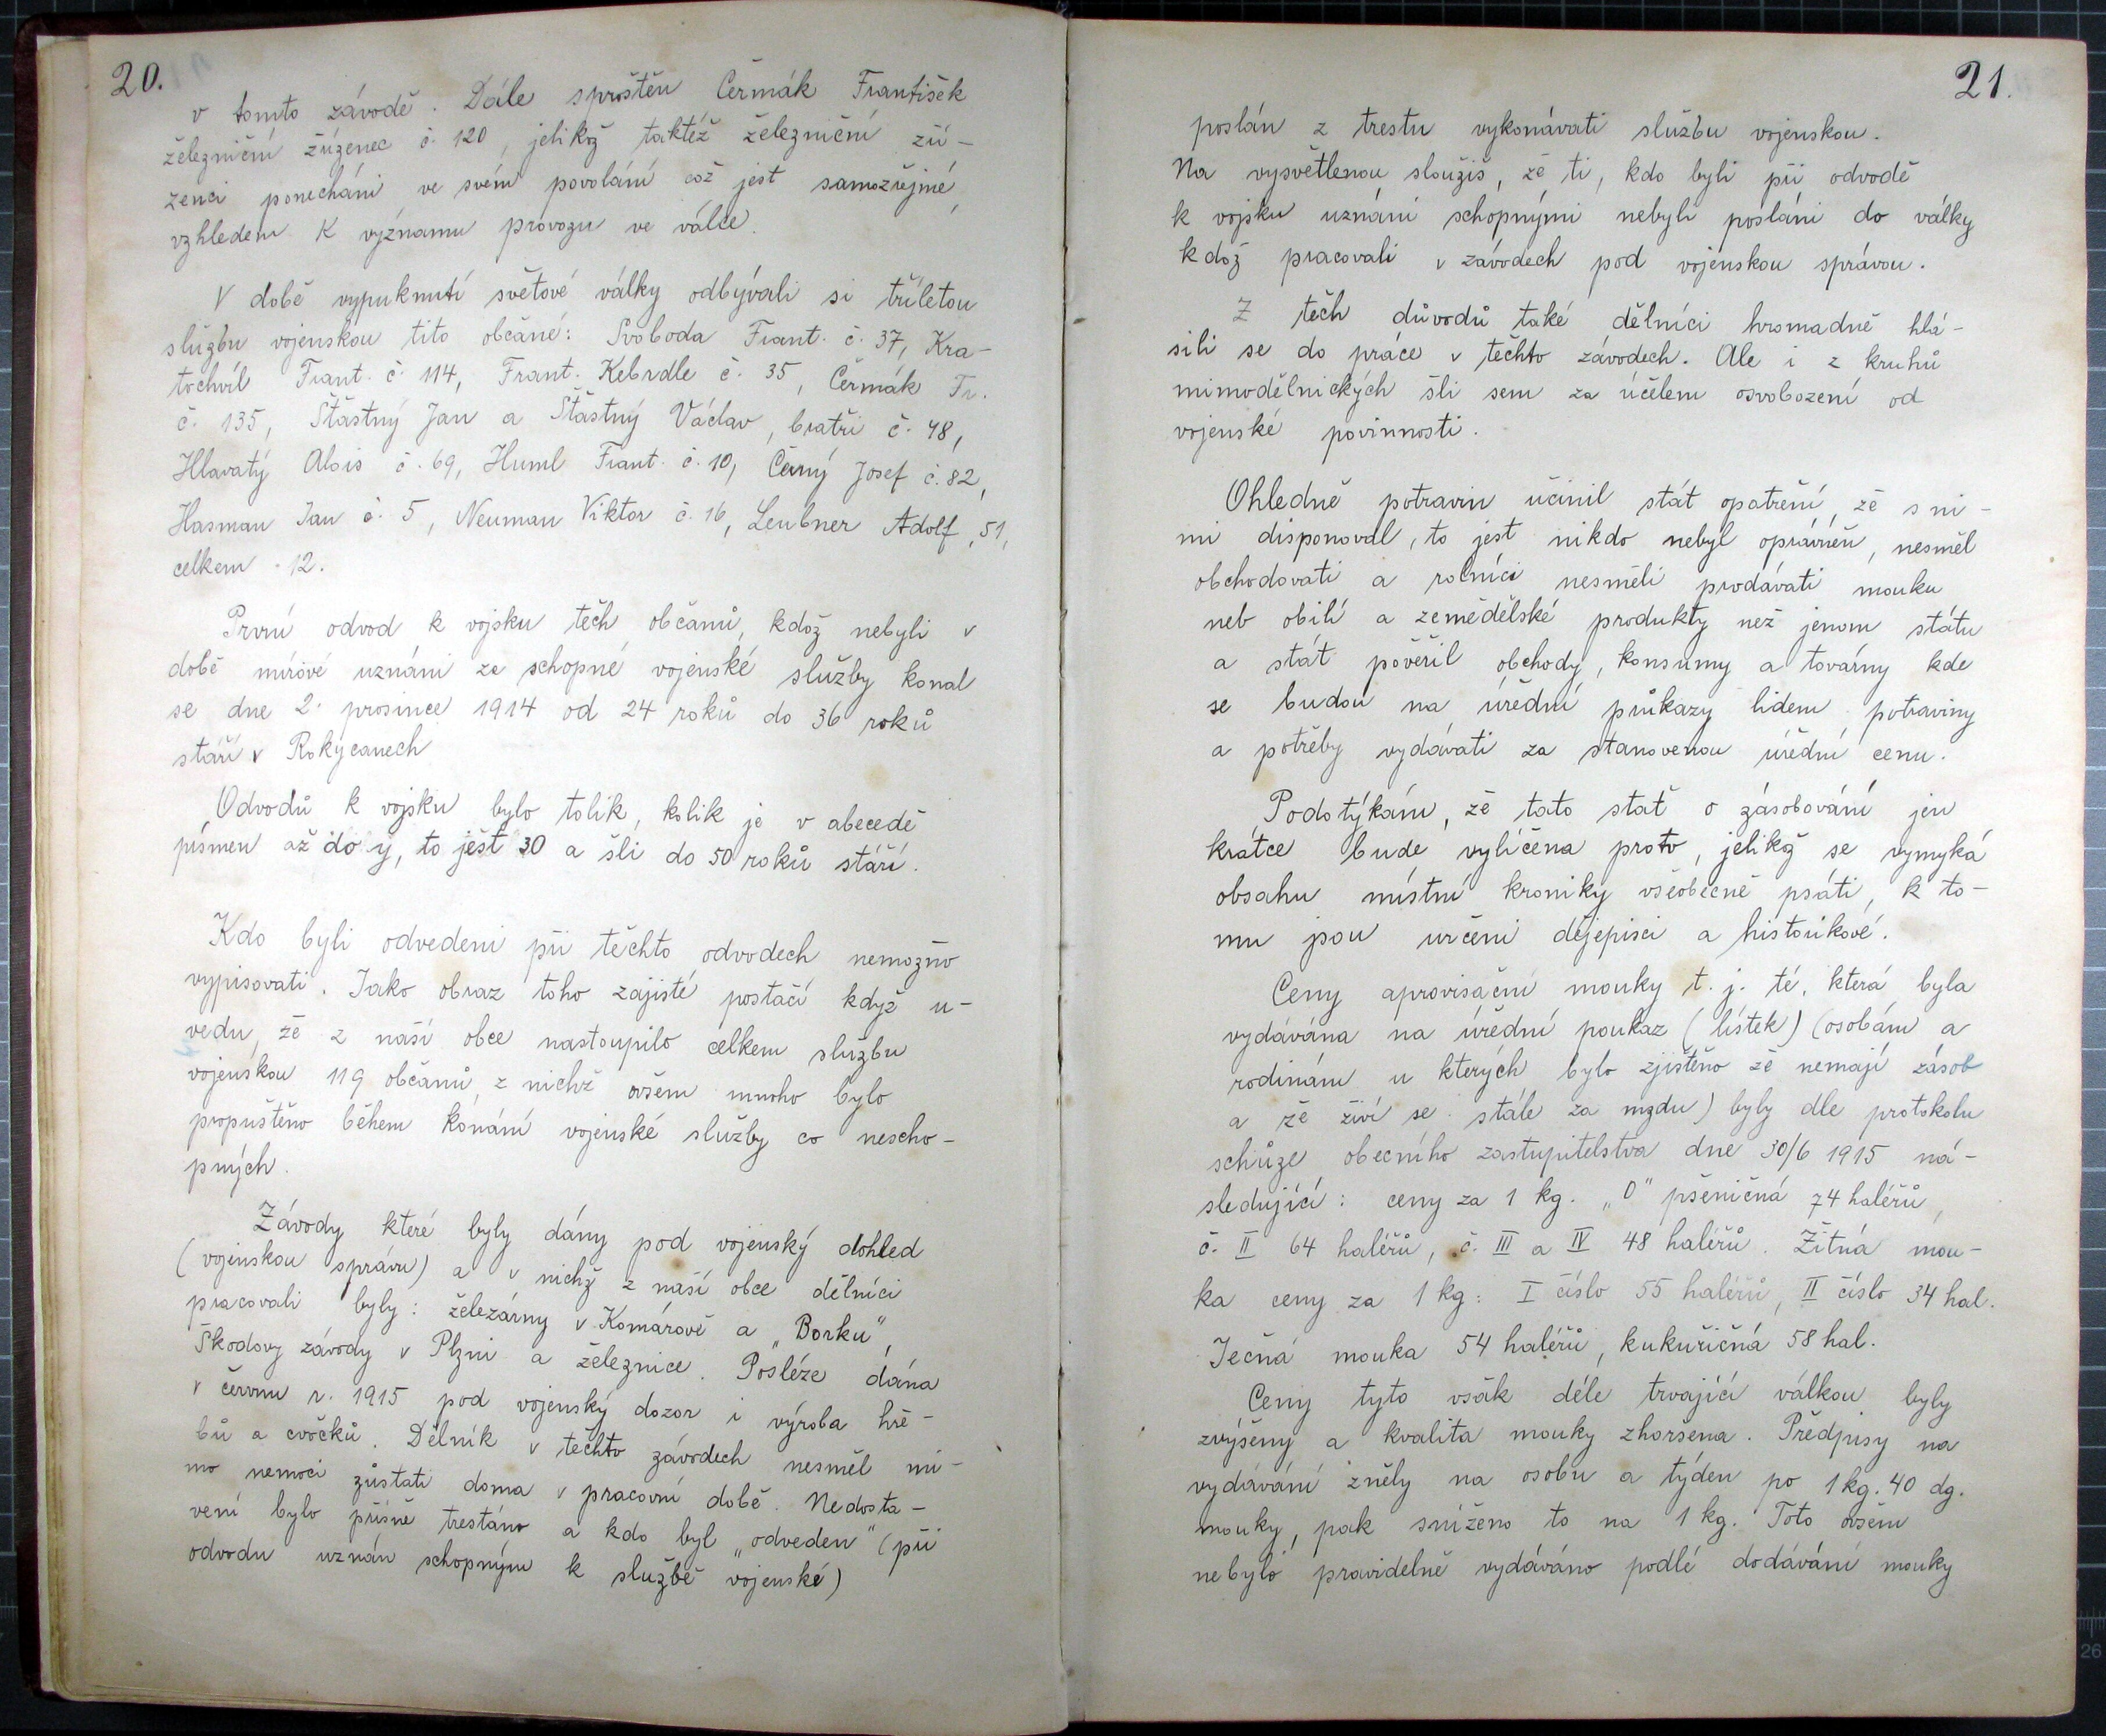 20.
v tomto závodě. Dále sproštěn Čermák František
železniční zřízenec č. 120, jelikož taktéž železniční zří-
zenci ponecháni ve svém povolání což jest samozřejmé,
vzhledem k významu provozu ve válce.
V době vypuknutí světové války odbývali si tříletou
službu vojenskou tito občané: Svoboda Frant. č. 37, Kra-
tochvíl Frant. č. 114, Frant. Kebrdle č. 35, Čermák Fr.
č. 135, Štastný Jan a Štastný Václav, bratři č. 48,
Hlavatý Alois č. 69, Huml Frant. č. 10, Černý Josef č. 82,
Hasman Jan č. 5, Neuman Viktor č. 16, Leubner Adolf, 51,
celkem 12.
První odvod k vojsku těch občanů, kdož nebyli v
době mírové uznáni za schopné vojenské služby konal
se dne 2. prosince 1914 od 24 roků do 36 roků
stáří v Rokycanech
Odvodů k vojsku bylo tolik, kolik je v abecedě
písmen až do y, to jest 30 a šli do 50 roků stáří.
Kdo byli odvedeni při těchto odvodech nemožno
vypisovati. Jako obraz toho zajisté postačí když u-
vedu, že z naší obce nastoupilo celkem službu
vojenskou 119 občanů, z nichž ovšem mnoho bylo
propuštěno během konání vojenské služby co nescho-
pných.
Závody které byly dány pod vojenský dohled
(vojenskou správu) a v nichž z naší obce dělníci
pracovali byly: železárny v Komárově a „Borku",
Škodovy závody v Plzni a železnice. Posléze dána
v červnu r. 1915 pod vojenský dozor i výroba hře-
bů a cvočků. Dělník v těchto závodech nesměl mi-
mo nemoci zůstati doma v pracovní době. Nedosta-
vení bylo přísně trestáno a kdo byl „odveden" (při
odvodu uznán schopným k službě vojenské)
21.
poslán z trestu vykonávati službu vojenskou.
Na vysvětlenou sloužiž, že ti, kdo byli při odvodě
k vojsku uznáni schopnými nebyli posláni do války
kdož pracovali v závodech pod vojenskou správou.
Z těch důvodů také dělníci hromadně hlá-
sili se do práce v těchto závodech. Ale i z kruhů
mimodělnických šli sem za účelem osvobození od
vojenské povinnosti.
Ohledně potravin učinil stát opatření, že s ni-
mi disponoval, to jest nikdo nebyl oprávněn, nesměl
obchodovati a rolníci nesměli prodávati mouku
neb obilí a zemědělské produkty než jenom státu
a stát pověřil obchody, konsumy a továrny kde
se budou na úřední průkazy lidem potraviny
a potřeby vydávati za stanovenou úřední cenu.
Podotýkám, že tato stať o zásobování jen
krátce bude vylíčena proto, jelikož se vymyká
obsahu místní kroniky všeobecně psáti, k to-
mu jsou určeni dějepisci a historikové.
Ceny aprovisační mouky t. j. té, která byla
vydávána na úřední poukaz (lístek) (osobám a
rodinám u kterých bylo zjištěno že nemají zásob
a že živí se stále za mzdu) byly dle protokolu
schůze obecního zastupitelstva dne 30/6 1915 ná-
sledující: ceny za 1 kg. „0" pšeničná 74 haléřů,
č. II 64 haléřů, č. III a IV 48 haléřů. Žitná mou-
ka ceny za 1 kg: I číslo 55 haléřů, II číslo 34 hal.
Ječná mouka 54 haléřů, kukuřičná 58 hal.
Ceny tyto však déle trvající válkou byly
zvýšeny a kvalita mouky zhoršena. Předpisy na
vydávání zněly na osobu a týden po 1 kg. 40 dg.
mouky, pak sníženo to na 1 kg. Toto ovšem
nebylo pravidelně vydáváno podlé dodávání mouky
26